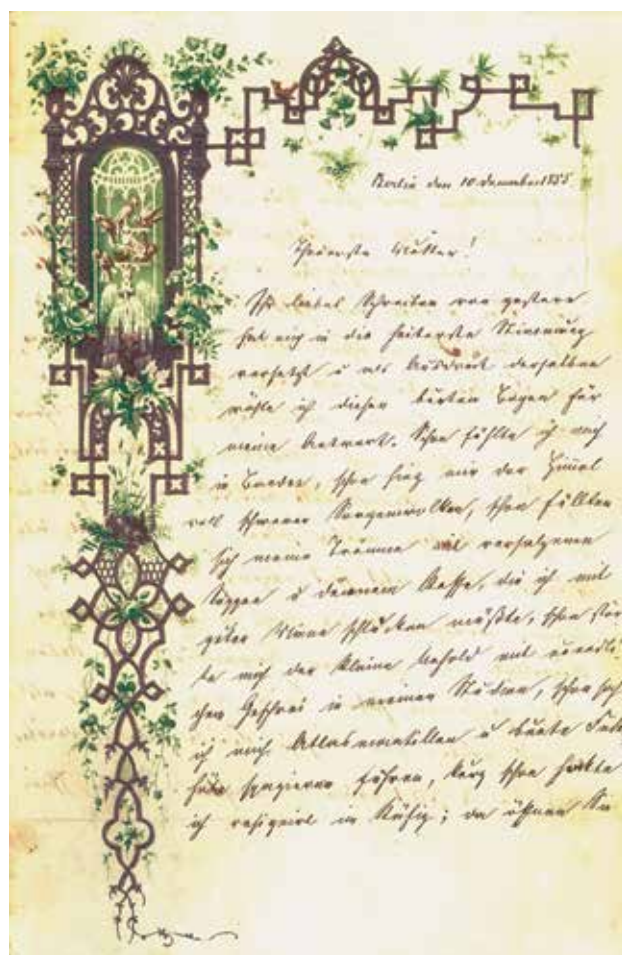 Berlin den 10 Dezember 1855
Theuerste Mutter!
Ihr liebes Schreiben von gestern
hat mich in die heiterste Stimmung
versetzt u als Ausdruck derselben
wähle ich diesen bunten Bogen für
meine Antwort. Schon fühlte ich mich
in Banden, schon hing mir der Himmel
voll schwerer Sorgenwolken, schon füllten
sich meine Träume mit versalzenen
Suppen u dünnem Kaffe, die ich mit
guter Miene schlucken müßte, schon stör
te mich der kleine mit unendli
chem Geschrei in meinen Studien, schon sah
ich mich Atlasmantillen u bunte
hüte spazieren führen, kurz schon hockte
ich resignirt im Käfig; da öffnen Sie